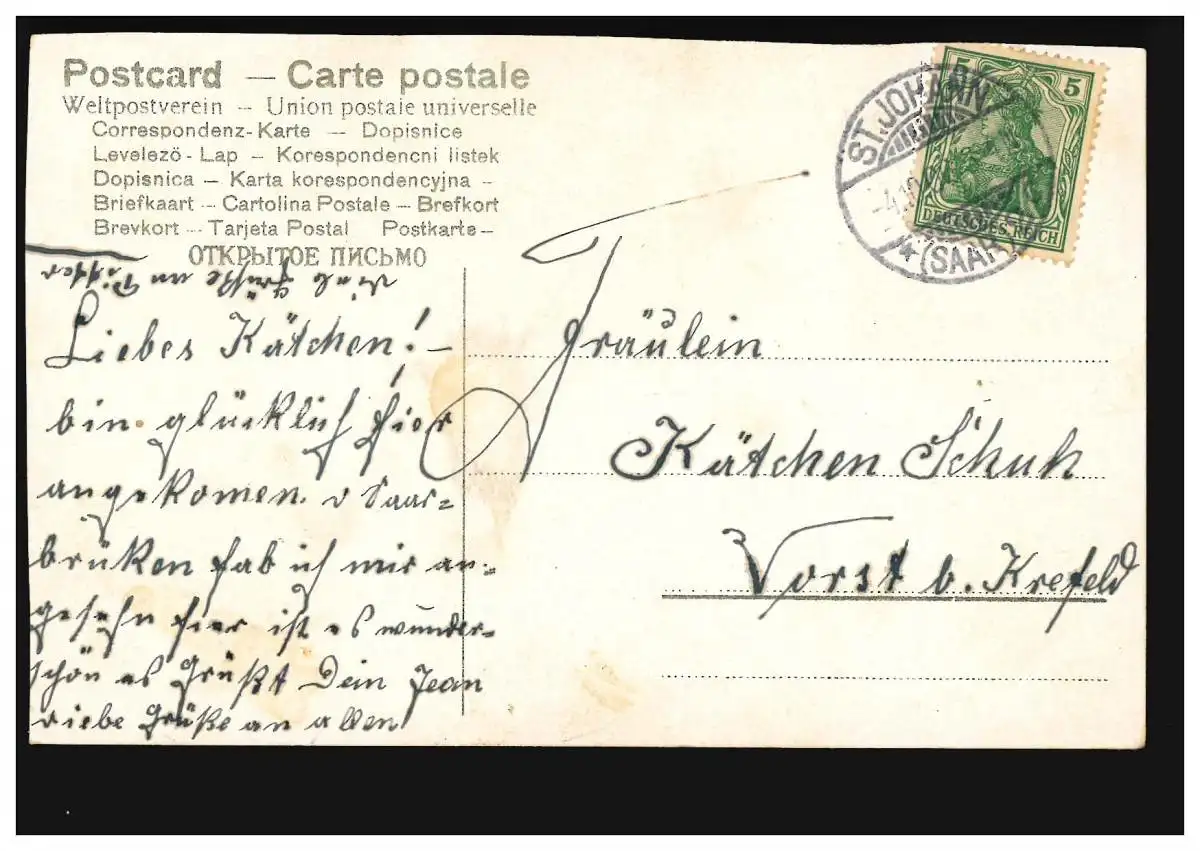 Postcard — Carte postale
Weltpostverein — Union postale universelle
Correspondenz-Karte — Dopisnice
Levelezö-Lap — Korespondencni listek
Dopisnica — Karta korespondencyjna —
Briefkaart — Cartolina Postale — Brefkort
Brevkort — Tarjeta Postal Postkarte —
ОТКРЫТОЕ ПИСЬМО
Viele Grüße an
Liebes Kätchen! —
bin glücklich hier
angekomen. v Saar=
brüken hab ich mir an=
gesehn hier ist es wunder=
schön es Grüßt Dein Jean
viele Grüße an allen
Fräulein
Kätchen Schuh
Vorst b. Krefeld
ST. JOHANN
(SAAR)
5 5
DEUTSCHES REICH